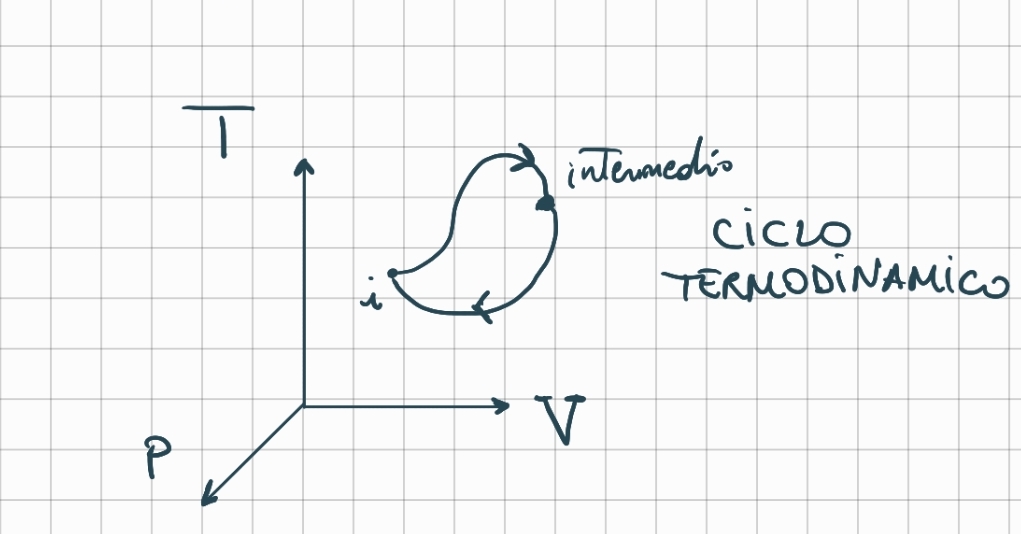 T
intermedio
CICLO
TERMODINAMICO
i
V
P